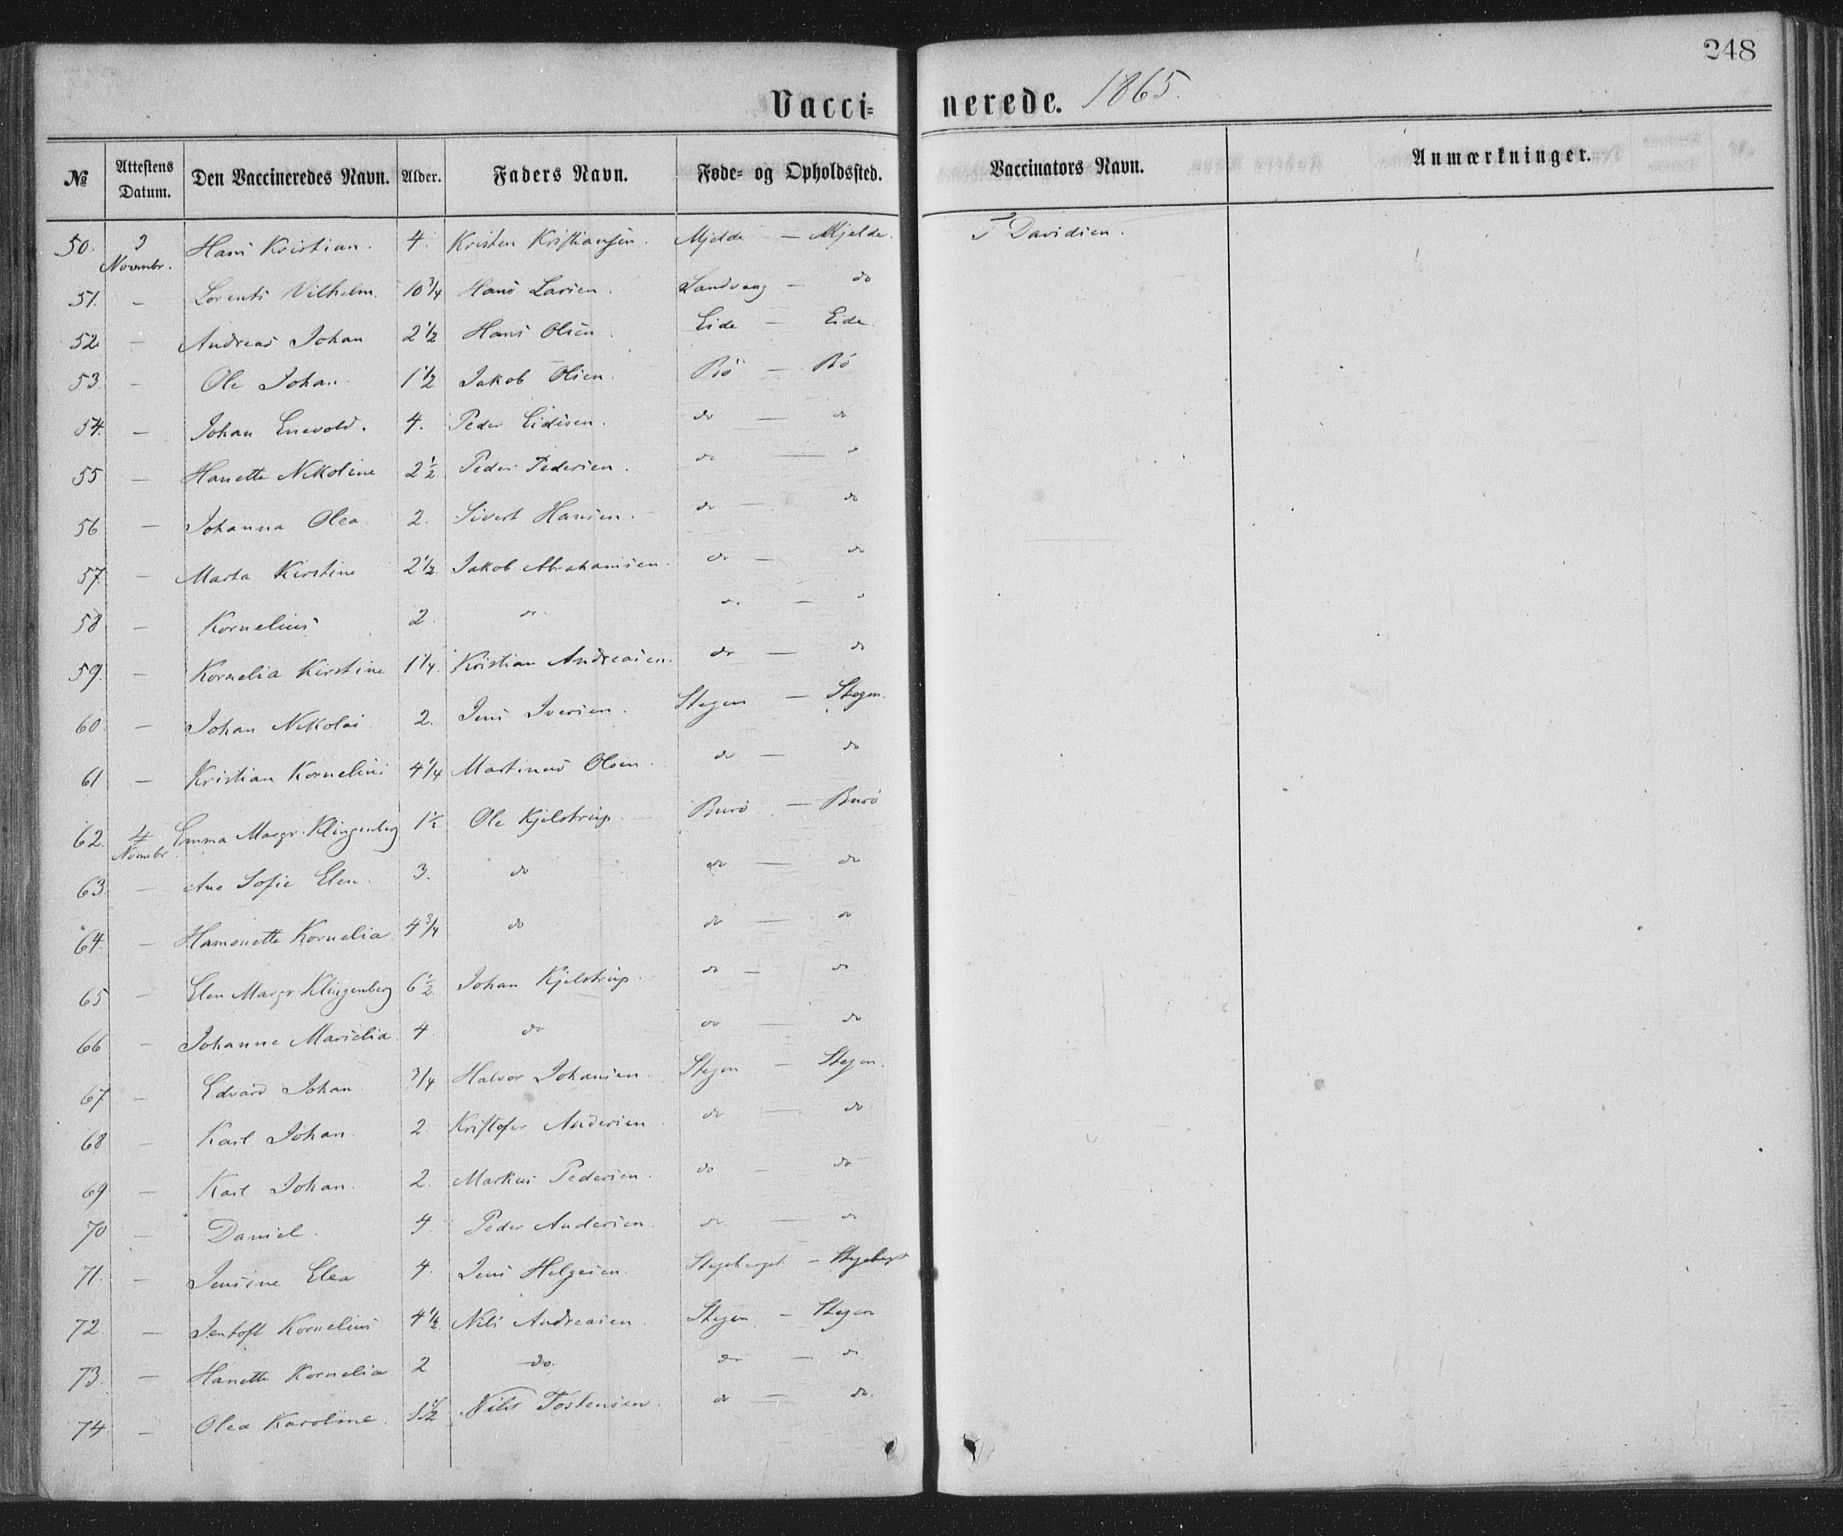 248
Vaccinerede. 1865.
№ Attestens Datum. Den Vaccineredes Navn. Alder. Faders Navn. Føde- og Opholdssted. Vaccinators Navn. Anmærkninger.
50. 3 Novembr. Hans Kristian. 4. Kristen Kristiansen. Mjelde — Mjelde. Davidsen.
51. — Lorents Vilhelm. 10 3/4 Hans Larsen. Landvaag — do
52 — Andreas Johan 2 1/2 Hans Olsen. Eide — Eide
53. — Ole Johan. 1 1/2 Jakob Olsen. Bö — Bö
54. — Johan Enevold. 4. Peder Eidisen. do — do
55 — Hanette Nikoline 2 1/2 Peder Pedersen. do — do
56 — Johanna Olea. 2. Sivert Hansen. do — do
57. — Marta Kirstine 2 1/2 Jakob Abrahamsen. do — do
58 — Kornelius 2 do. do. — do
59. — Kornelia Kirstine 1 1/4. Kristian Andreasen. do — do
60. — Johan Nikolai 2. Jens Iversen. Stegen — Stegen.
61 — Kristian Kornelius 4 1/4 Martinus Olsen. do — do
62. 4 Novembr Emma Margr. Klingenberg 1 1/2 Ole Kjelstrup. Burö — Burö
63. — Ane Sofie Elen. 3. do do — do
64. — Hamonette Kornelia. 4 3/4 do do — do
65 — Elen Margr. Klingenberg 6 1/2 Johan Kjelstrup. do — do
66 — Johanne Marselia. 4. do do — do
67 — Edvard Johan. 3/4 Halvor Johansen. Stegen — Stegen.
68 — Karl Johan. 2. Kristofer Andersen. do — do
69 — Karl Johan. 2. Markus Pedersen. do — do
70 — Daniel. 4 Peder Andersen. do — do
71. — Jensine Elea 4. Jens Helgesen. Stegeberget — Stegeberget
72. — Jentoft Kornelius 4 1/2 Nils Andreasen. Stegen — Stegen
73 — Hanette Kornelia 2 do. do — do
74 — Olea Karoline. Nils Tostensen. do — do.